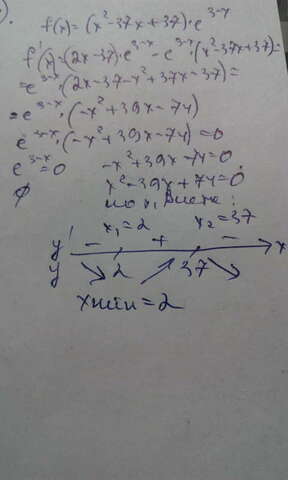 f(x) = (x² - 37x + 37) · e³⁻ˣ
f'(x) = (2x - 37) · e³⁻ˣ - e³⁻ˣ · (x² - 37x + 37) =
= e³⁻ˣ · (2x - 37 - x² + 37x - 37) =
= e³⁻ˣ · (-x² + 39x - 74)
e³⁻ˣ · (-x² + 39x - 74) = 0
e³⁻ˣ = 0 -x² + 39x - 74 = 0
∅ x² - 39x + 74 = 0
по т. Виета:
x₁ = 2 x₂ = 37
y' - + - x
y 2 37
xmin = 2